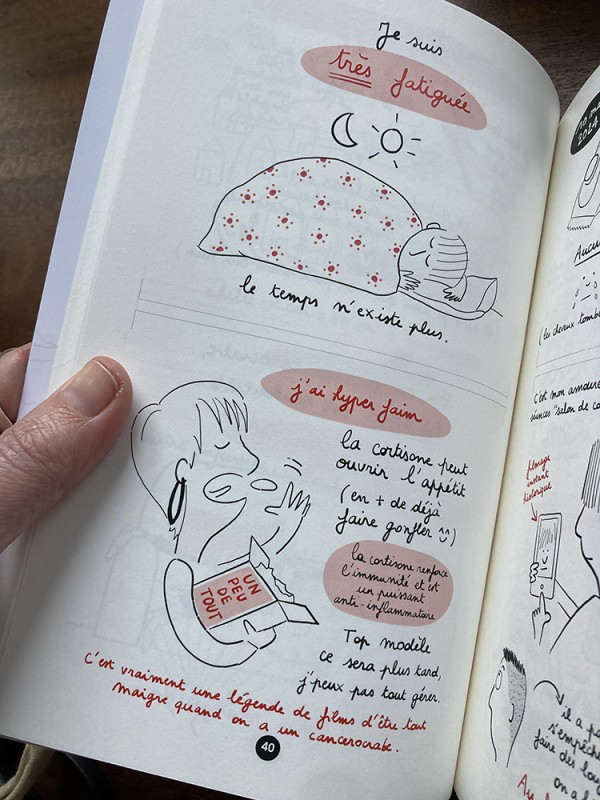 Je suis
très fatiguée
le temps n'existe plus.
j'ai hyper faim
la cortisone peut
ouvrir l'appétit
(en + de déjà
faire gonfler )
la cortisone renforce
l'immunité et est
un puissant
anti-inflammatoire
UN
PEU
DE
TOUT
Top modèle
ce sera plus tard,
j'peux pas tout gérer.
C'est vraiment une légende de films d'être tout
maigre quand on a un cancerocrabe.
40
10
2024
Aucu
(les cheveux tomb
c'est mon amoure
séances "salon de co
filmage
instant
historique
il a pa
s'empêch
faire des lou
on a l
Au